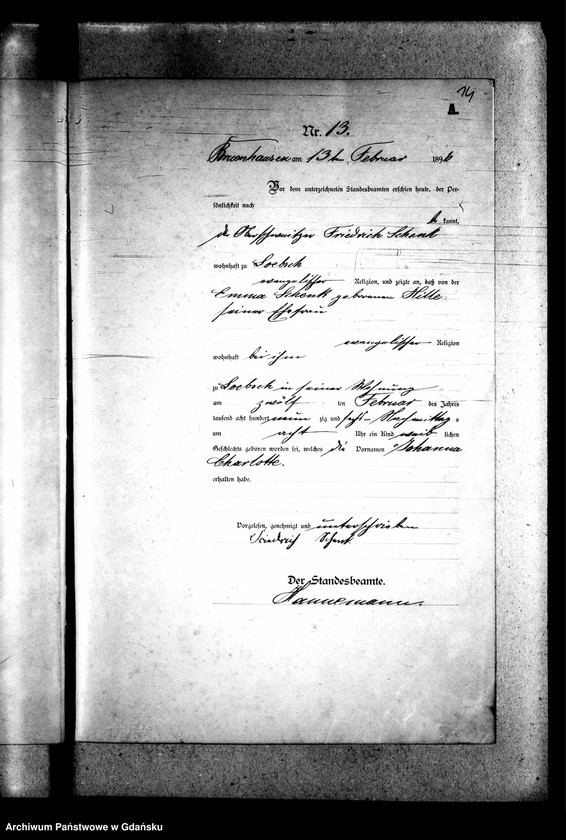 14
A.
Nr. 13.
Brusenhausen am 13ten Februar 1896
Vor dem unterzeichneten Standesbeamten erschien heute, der Per-
sönlichkeit nach
be kannt,
der Friedrich Schenk
wohnhaft zu Loebsch
evangelischer Religion, und zeigte an, daß von der
Emma Schenk geborenen Hille
seiner Ehefrau
evangelischer Religion
wohnhaft bei ihm
zu Loebsch in seiner Wohnung
am zwölf ten Februar des Jahres
tausend acht hundert neun zig und sechs Nachmittags
um acht Uhr ein Kind weib lichen
Geschlechts geboren worden sei, welches die Vornamen Johanna
Charlotte.
erhalten habe.
Vorgelesen, genehmigt und unterschrieben
Friedrich Schenk
Der Standesbeamte.
Hannemann.
Archiwum Państwowe w Gdańsku